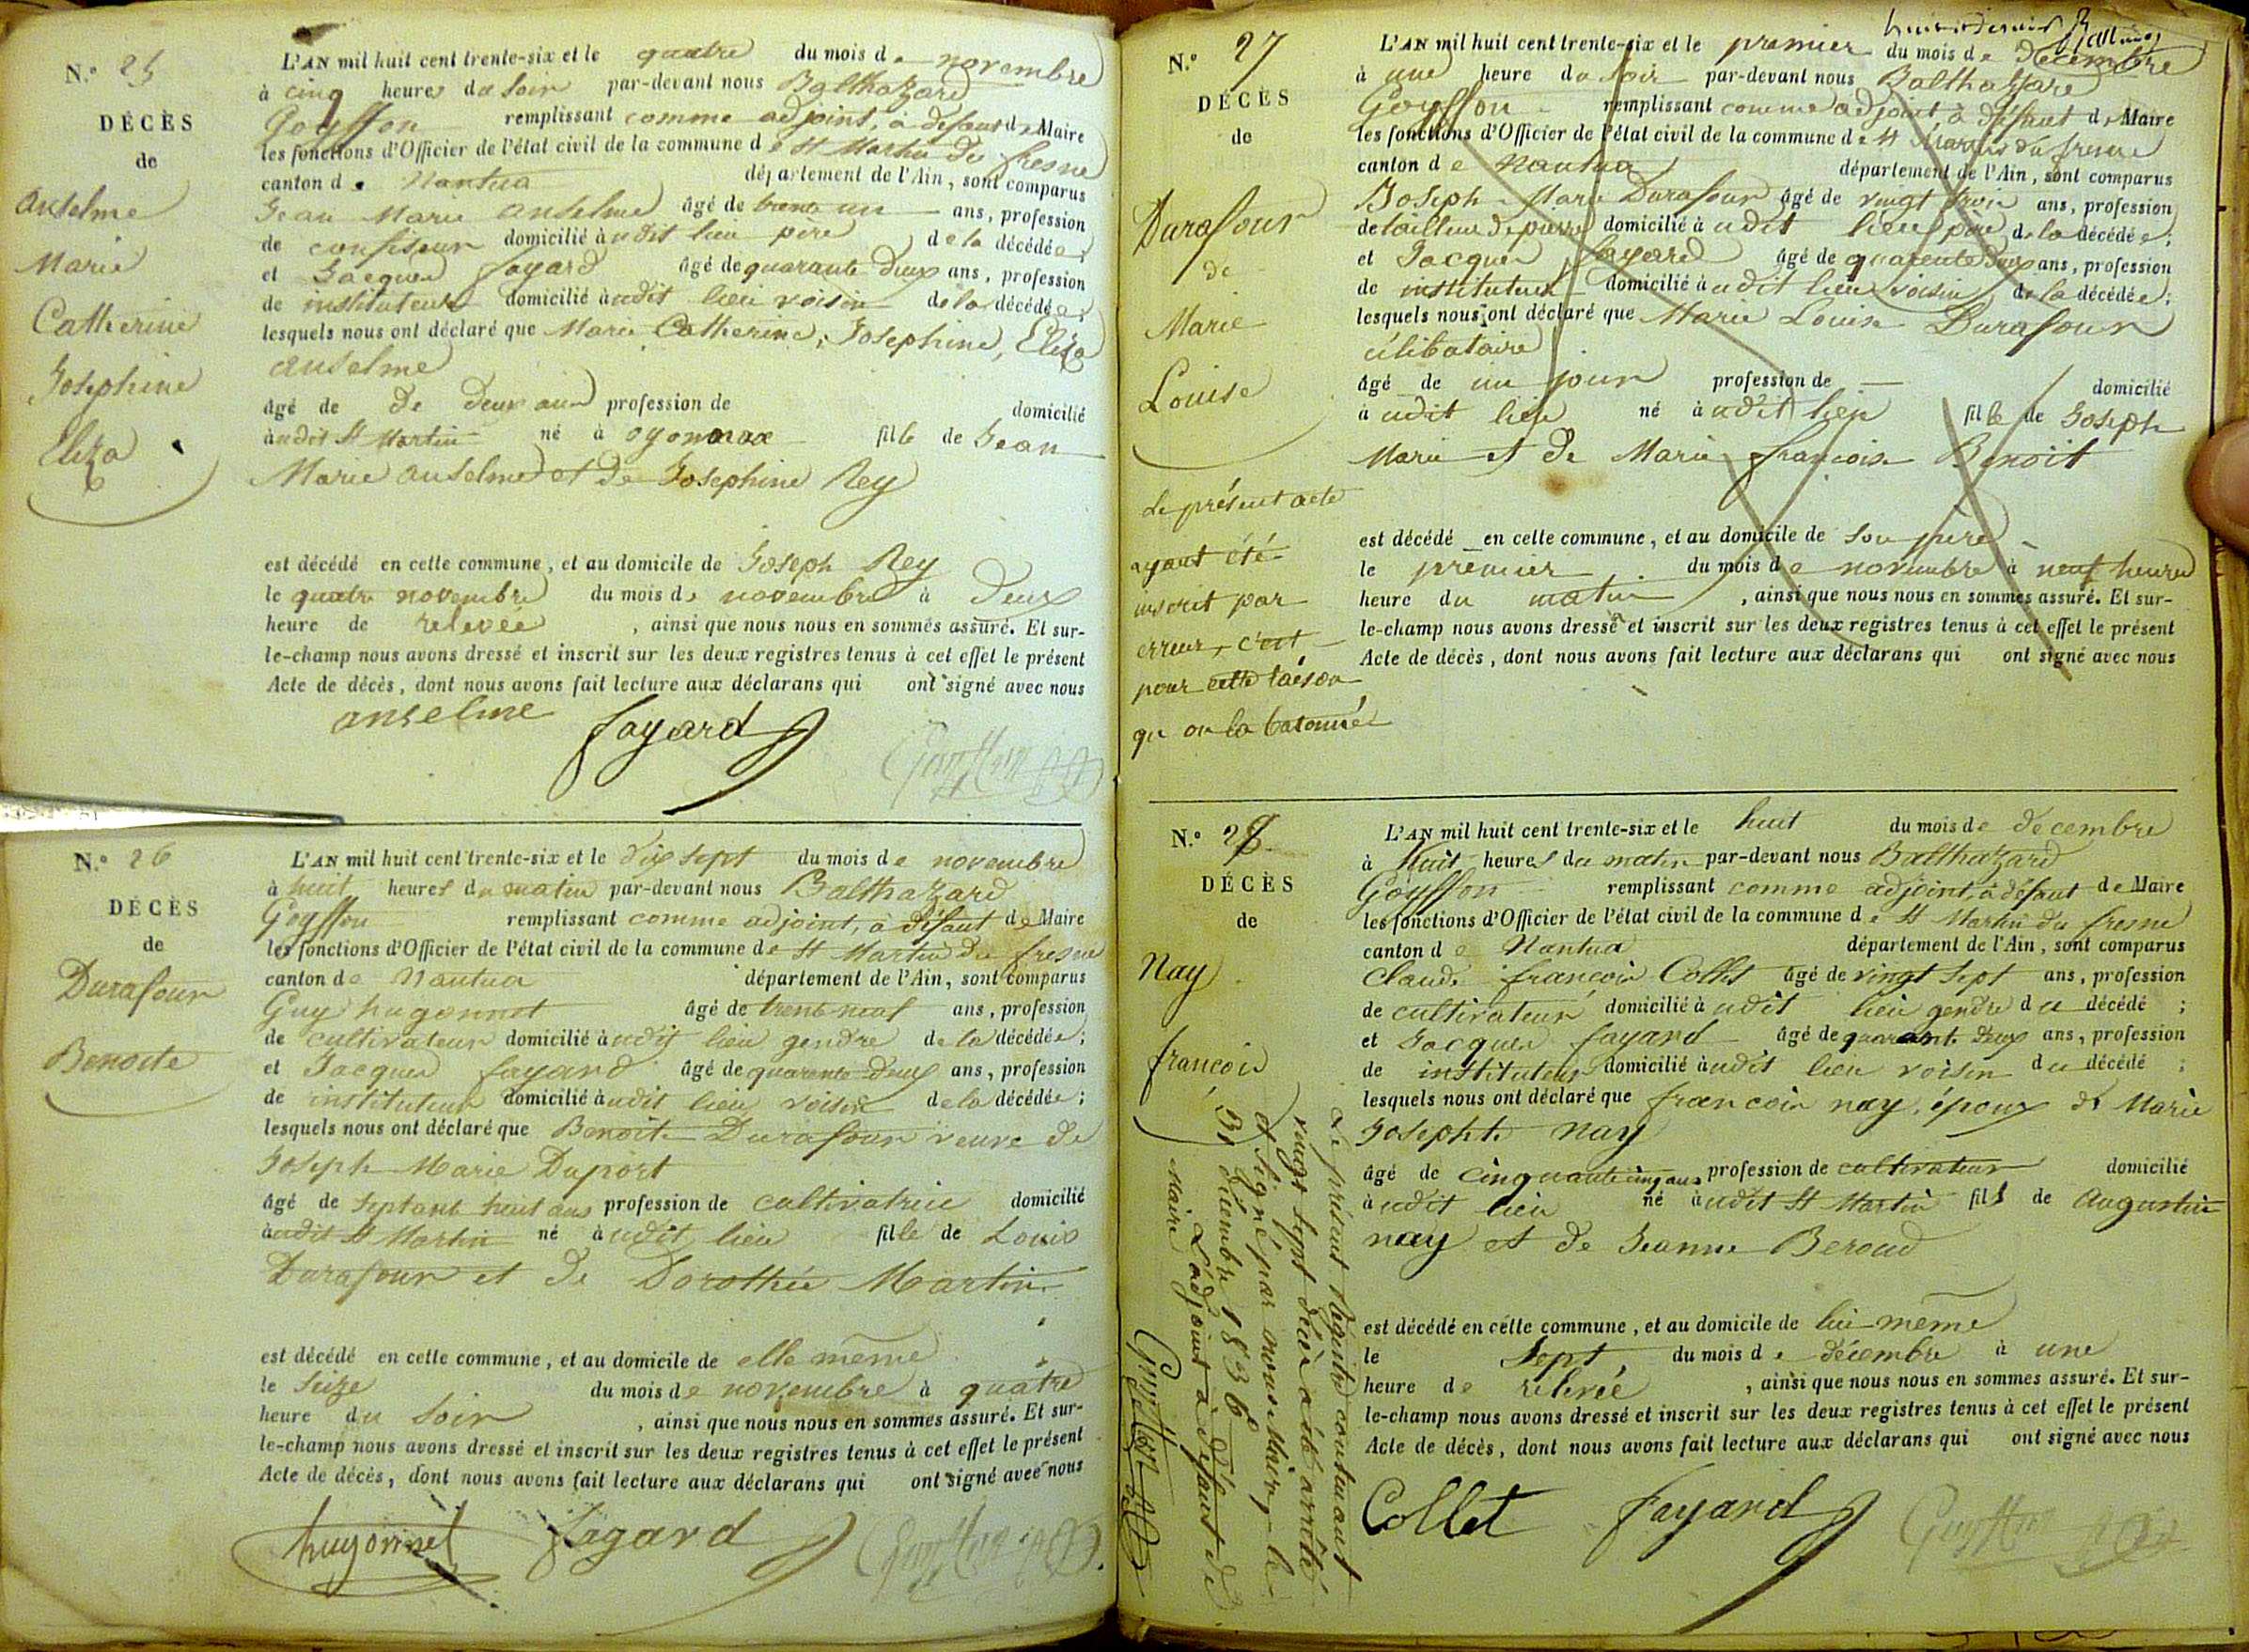 N.° 25
DÉCÈS
de
anselme
Marie
Catherine
Josephine
Eliza
L'AN mil huit cent trente-six et le quatre du mois de novembre
à cinq heures du soir par-devant nous Balthazard
Goyffon remplissant comme adjoint, à défaut de Maire
les fonctions d'Officier de l'état civil de la commune de St Martin du fresne
canton de Nantua département de l'Ain, sont comparus
Jean Marie anselme âgé de trente un ans, profession
de confiseur domicilié à udit lieu père de la décédée;
et Jacques fayard âgé de quarante deux ans, profession
de instituteur domicilié à udit lieu voisin de la décédée;
lesquels nous ont déclaré que Marie Catherine, Josephine, Eliza
anselme
âgé de de deux ans profession de domicilié
à udit St Martin né à oyonnax fille de Jean
Marie anselme et de Josephine Rey
est décédé en cette commune, et au domicile de Joseph Rey
le quatre novembre du mois de novembre à Deux
heure de relevée , ainsi que nous nous en sommes assuré. Et sur-
le-champ nous avons dressé et inscrit sur les deux registres tenus à cet effet le présent
Acte de décès, dont nous avons fait lecture aux déclarans qui ont signé avec nous
anselme fayard Goyffon adj
N.° 26
DÉCÈS
de
Durafour
Benoite
L'AN mil huit cent trente-six et le dix sept du mois de novembre
à huit heures du matin par-devant nous Balthazard
Goyffon remplissant comme adjoint, à défaut de Maire
les fonctions d'Officier de l'état civil de la commune de St Martin du fresne
canton de Nantua département de l'Ain, sont comparus
Guy hugonnet âgé de trente neuf ans, profession
de cultivateur domicilié à udit lieu gendre de la décédée;
et Jacques fayard âgé de quarante deux ans, profession
de instituteur domicilié à udit lieu voisin de la décédée;
lesquels nous ont déclaré que Benoite Durafour veuve de
Joseph Marie Duport
âgé de septante huit ans profession de cultivatrice domicilié
à udit St Martin né à udit lieu fille de Louis
Durafour et de Dorothée Martin
est décédé en cette commune, et au domicile de elle même
le seize du mois de novembre à quatre
heure du soir , ainsi que nous nous en sommes assuré. Et sur-
le-champ nous avons dressé et inscrit sur les deux registres tenus à cet effet le présent
Acte de décès, dont nous avons fait lecture aux déclarans qui ont signé avec nous
hugonnet fayard Goyffon adj
N.° 27
DÉCÈS
de
Durafour
de
Marie
Louise
Le présent acte
ayant été
inscrit par
erreur, c'est
pour cette raison
qu on la batonné
L'AN mil huit cent trente-six et le premier du mois de décembre
à une heure du soir par-devant nous Balthazard
Goyffon remplissant comme adjoint, à défaut de Maire
les fonctions d'Officier de l'état civil de la commune de St Martin du fresne
canton de Nantua département de l'Ain, sont comparus
Joseph Marie Durafour âgé de vingt trois ans, profession
de tailleur de pierre domicilié à udit lieu père de la décédée;
et Jacques fayard âgé de quarante deux ans, profession
de instituteur domicilié à udit lieu voisin de la décédée;
lesquels nous ont déclaré que Marie Louise Durafour
célibataire
âgé de un jour profession de domicilié
à udit lieu né à udit lieu fille de Joseph
Marie et de Marie françoise Benoit
est décédé en cette commune, et au domicile de son père
le premier du mois de novembre à neuf heures
heure du matin , ainsi que nous nous en sommes assuré. Et sur-
le-champ nous avons dressé et inscrit sur les deux registres tenus à cet effet le présent
Acte de décès, dont nous avons fait lecture aux déclarans qui ont signé avec nous
N.° 28
DÉCÈS
de
Nay
françois
L'AN mil huit cent trente-six et le huit du mois de décembre
à huit heures du matin par-devant nous Balthazard
Goyffon remplissant comme adjoint, à défaut de Maire
les fonctions d'Officier de l'état civil de la commune de St Martin du fresne
canton de Nantua département de l'Ain, sont comparus
Claude françois Collet âgé de vingt sept ans, profession
de cultivateur domicilié à udit lieu gendre du décédé ;
et Jacques fayard âgé de quarante deux ans, profession
de instituteur domicilié à udit lieu voisin du décédé ;
lesquels nous ont déclaré que françois nay, époux de Marie
Josephte nay
âgé de cinquante cinq ans profession de cultivateur domicilié
à udit lieu né à udit St Martin fils de augustin
nay et de Jeanne Beroud
est décédé en cette commune, et au domicile de lui même
le sept, du mois de décembre à une
heure de relevée , ainsi que nous nous en sommes assuré. Et sur-
le-champ nous avons dressé et inscrit sur les deux registres tenus à cet effet le présent
Acte de décès, dont nous avons fait lecture aux déclarans qui ont signé avec nous
Collet fayard Goyffon adj
Le présent Régistre contenant
vingt sept décès a été arrêté
et signé par nous Maire, le
31 décembre 1836
L'adjoint à défaut de
Maire
Goyffon adj